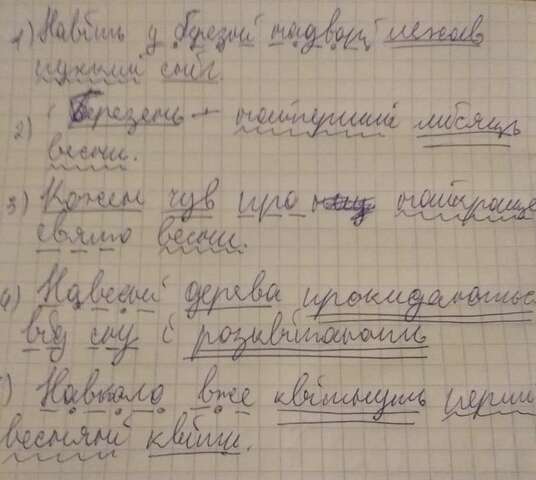 1) Навіть у березні надворі лежав
пухкий сніг
2) Березень – найперший місяць
весни.
3) Кожен чув про найкраще
свято весни.
4) Навесні дерева прокидаються
від сну і розквітають
) Навколо вже квітнуть перші
весняні квіти.